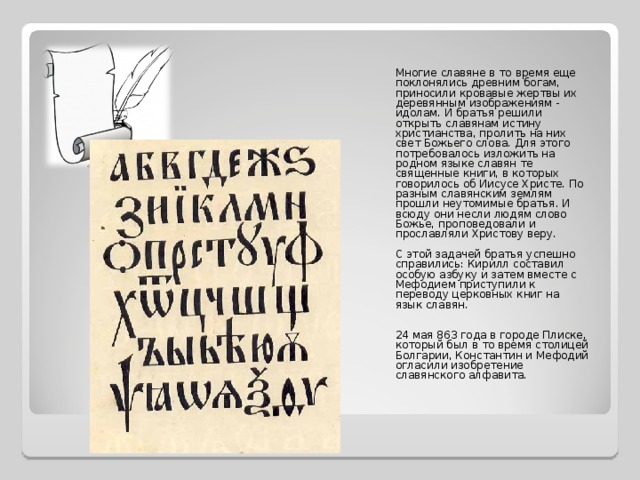 Многие славяне в то время еще
поклонялись древним богам,
приносили кровавые жертвы их
деревянным изображениям -
идолам. И братья решили
открыть славянам истину
христианства, пролить на них
свет Божьего слова. Для этого
потребовалось изложить на
родном языке славян те
священные книги, в которых
говорилось об Иисусе Христе. По
разным славянским землям
прошли неутомимые братья. И
всюду они несли людям слово
Божье, проповедовали и
прославляли Христову веру.
С этой задачей братья успешно
справились: Кирилл составил
особую азбуку и затем вместе с
Мефодием приступили к
переводу церковных книг на
язык славян.
24 мая 863 года в городе Плиске,
который был в то время столицей
Болгарии, Константин и Мефодий
огласили изобретение
славянского алфавита.
АБВГДЕЖЅ
ЗИЇКЛМН
ОПРСТȢѴФ
ХѾЦЧШЩ
ЪЫЬѢЮѪ
ѰꙖѠѦѮ